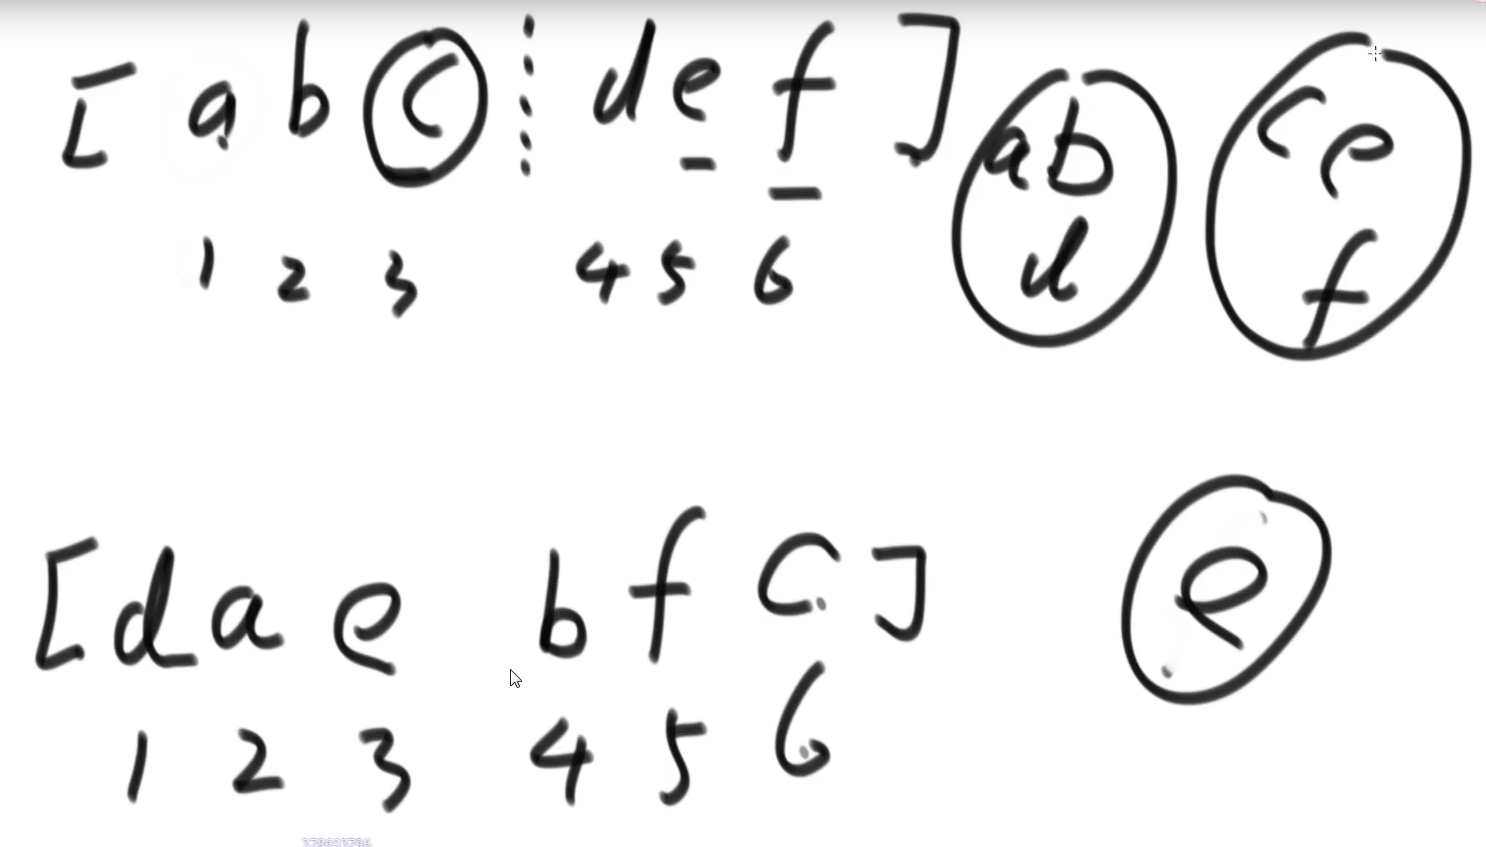 [ a b c d e f ]
1 2 3 4 5 6
a b
d
c e
f
[ d a e b f c ]
1 2 3 4 5 6
e